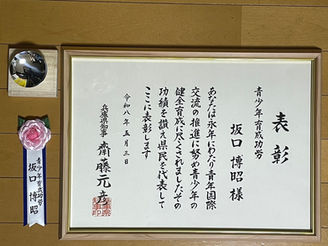 表彰
青少年育成功労
坂口博昭様
あなたは永年にわたり青年国際
交流の推進に努め青少年の
健全育成に尽くされましたその
功績を讃え県民を代表して
ここに表彰します
令和八年五月三日
兵庫県知事 齋藤元彦
青少年育成功労
坂口 博昭